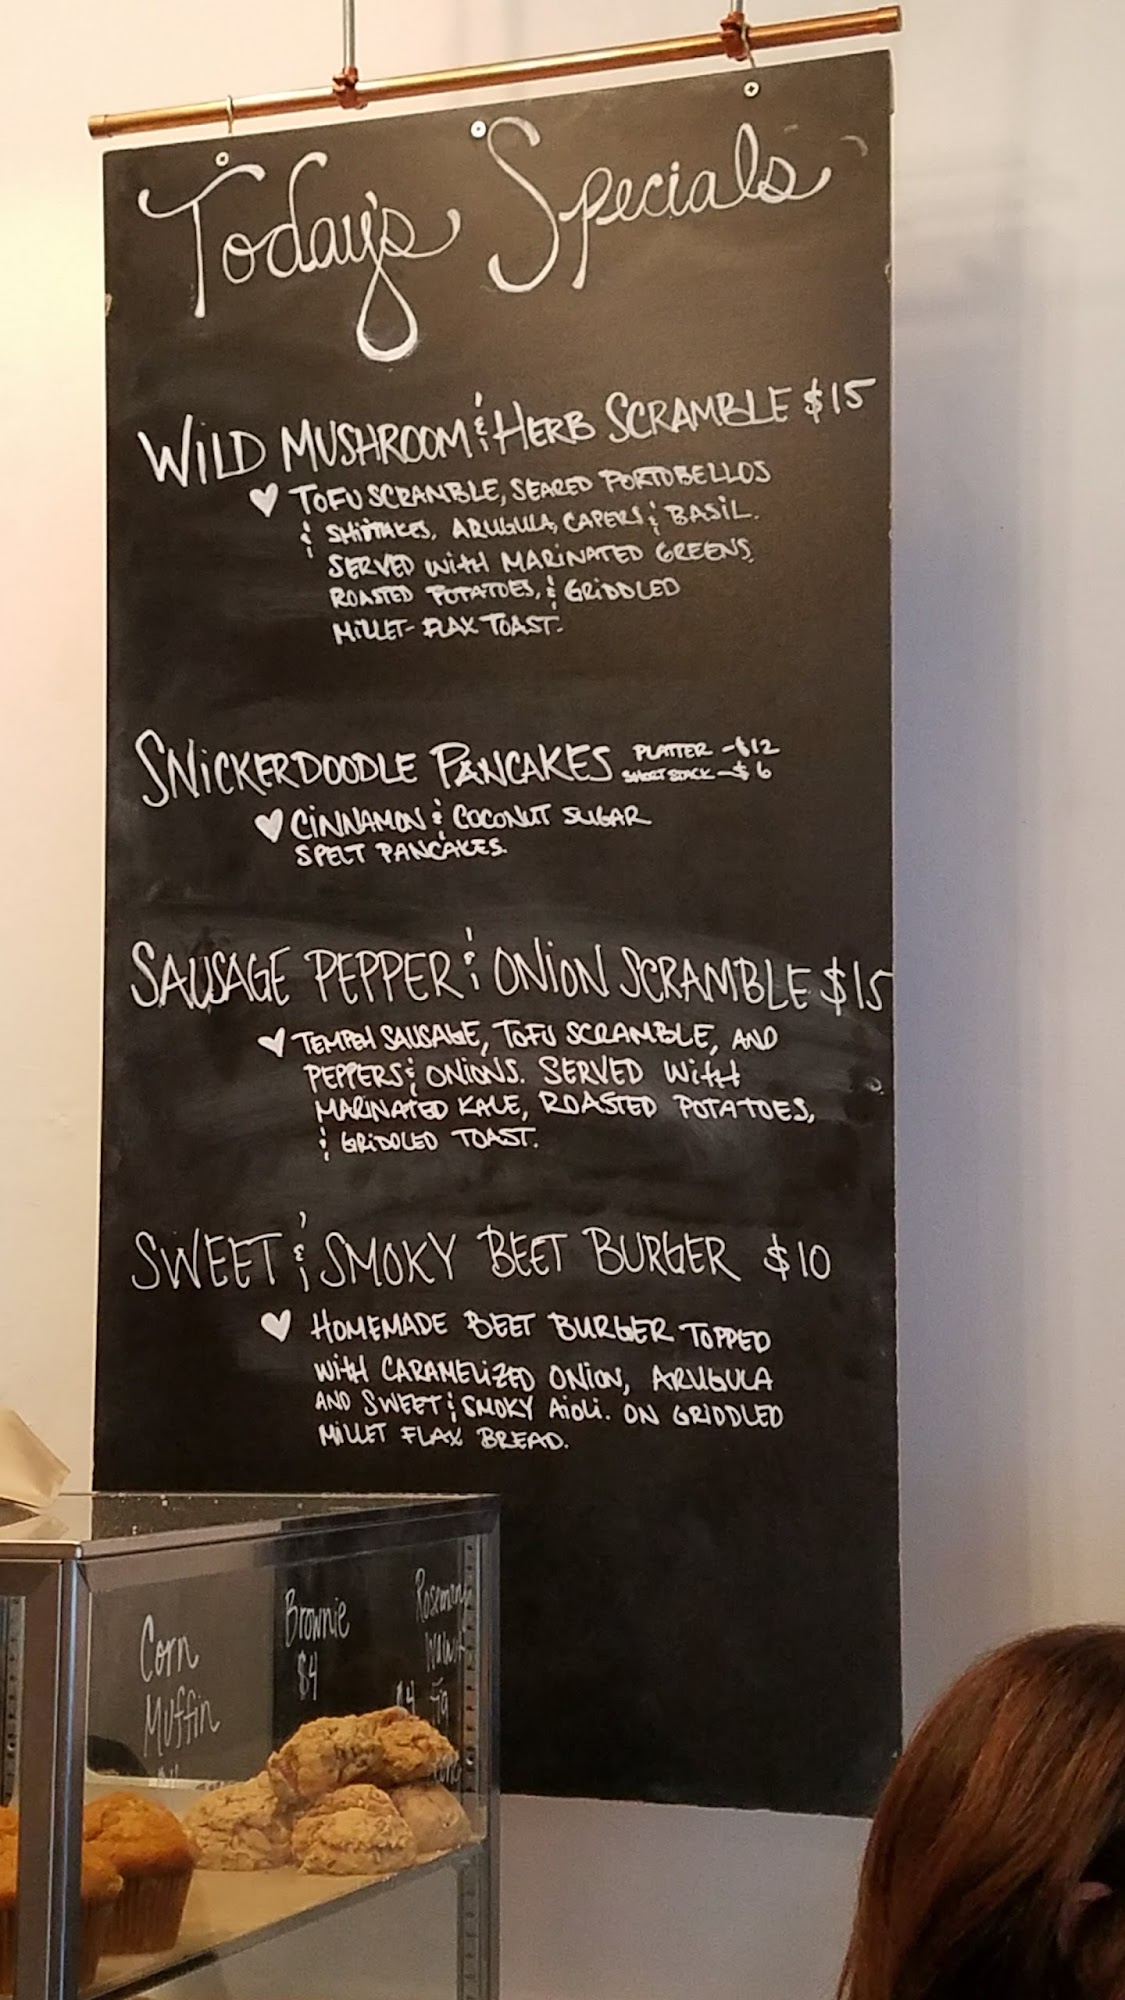 Today's Specials
WILD MUSHROOM & HERB SCRAMBLE $15
♥ TOFU SCRAMBLE, SEARED PORTOBELLOS
& SHIITAKES, ARUGULA, CAPERS & BASIL.
SERVED WITH MARINATED GREENS,
ROASTED POTATOES, & GRIDDLED
MILLET-FLAX TOAST.
SNICKERDOODLE PANCAKES PLATTER -$12
SHORT STACK -$6
♥ CINNAMON & COCONUT SUGAR
SPELT PANCAKES.
SAUSAGE PEPPER & ONION SCRAMBLE $15
♥ TEMPEH SAUSAGE, TOFU SCRAMBLE, AND
PEPPERS & ONIONS. SERVED WITH
MARINATED KALE, ROASTED POTATOES,
& GRIDDLED TOAST.
SWEET & SMOKY BEET BURGER $10
♥ HOMEMADE BEET BURGER TOPPED
WITH CARAMELIZED ONION, ARUGULA
AND SWEET & SMOKY AIOLI. ON GRIDDLED
MILLET FLAX BREAD.
Corn
Muffin
Brownie
$4
Rosemary
Walnut
$4 Fig